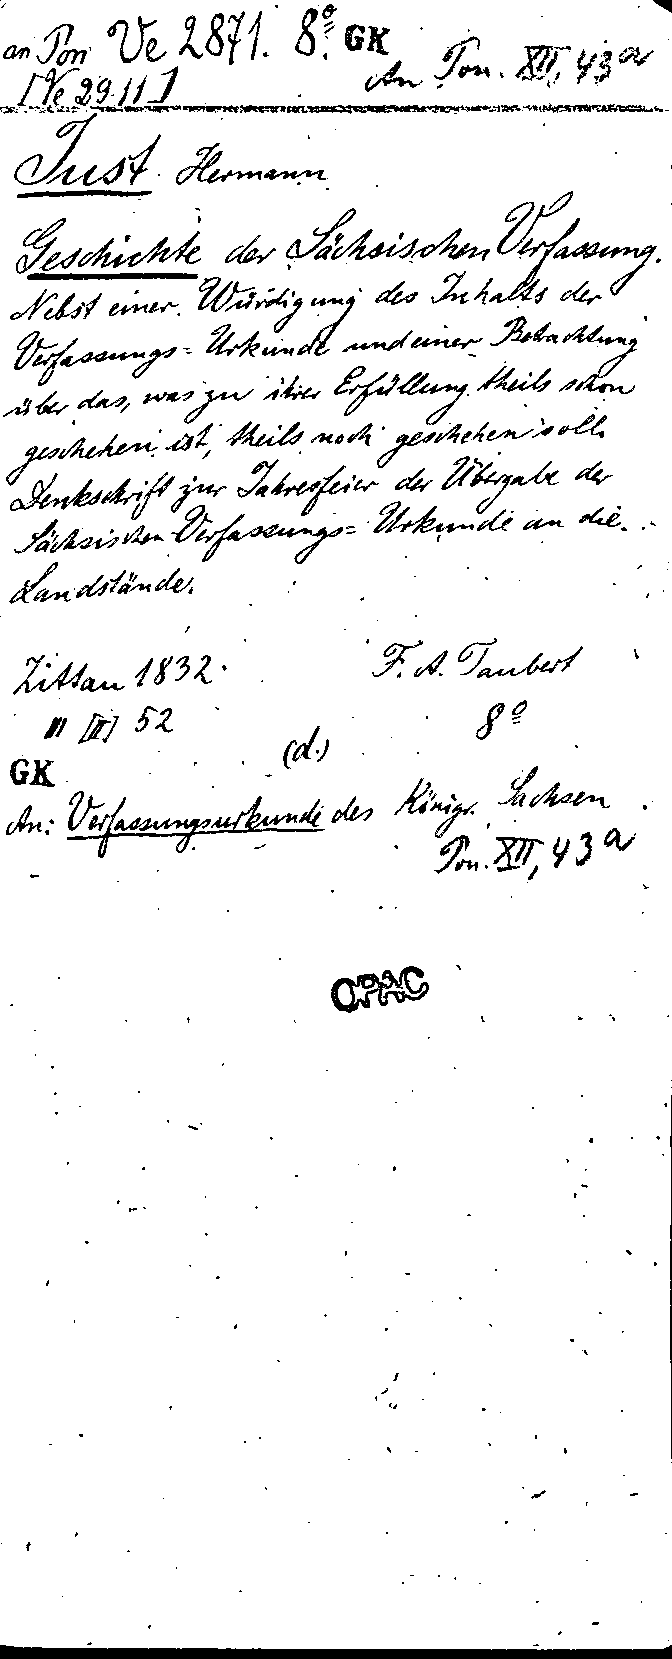 an Pon Ve 2871. 8º. GK
[Ve 2911] An Pon. XII, 43a
Just Hermann
Geschichte der Sächsischen Verfassung.
Nebst einer Würdigung des Inhalts der
Verfassungs=Urkunde und einer Betrachtung
über das, was zu ihrer Erfüllung theils schon
geschehen ist, theils noch geschehen soll.
Denkschrift zur Jahresfeier der Übergabe der
Sächsischen Verfassungs=Urkunde an die
Landstände.
Zittau 1832. F. A. Taubert
III [II] 52 8º
(d.)
GK
An: Verfassungsurkunde des Königr. Sachsen
Pon. XII, 43a
OPAC